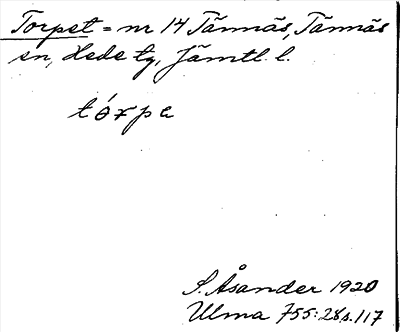 Torpet = nr 14 Tännäs, Tännäs
sn, Hede tg, Jämtl. l.
tórpa
S. Åsander 1920
Ulma 755:28 s. 117